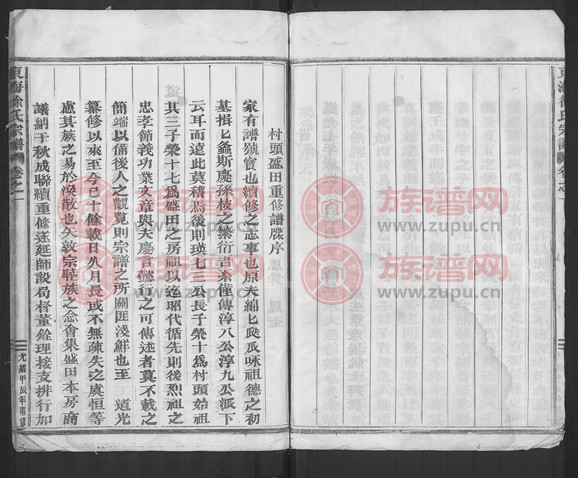 東海徐氏宗譜 卷之一
村頭盛田重修譜牒序
家有譜號實也續修之志事也原夫綿匕瓞瓜咏祖德之初
基揖匕螽斯慶孫枝之繁衍吾系僕傳淳八公淳九公派下
云耳而遠此莫稽焉後則瑛七三公長子榮十為村頭始祖
其三子榮十七為盛田之房祖以迄昭代循先則後烈祖之
忠孝節義功業文章與夫慶言懿行之可傳述者莫不載之
簡端以備後人之觀覧則宗譜之所關匪淺鮮也至 道光
纂修以來至今已十餘載日久月長或不無疏失之虞恒等
慮其族之易於渙散也矢敦宗睦族之念會集盛田本房商
議納于秋成聯續重修遂延師設局督董銓理接支排行加
光緒甲辰年重修
東海徐氏宗譜 卷之一
族谱网
www.zupu.cn
族谱网
www.zupu.cn
族谱网
www.zupu.cn
族谱网
www.zupu.cn